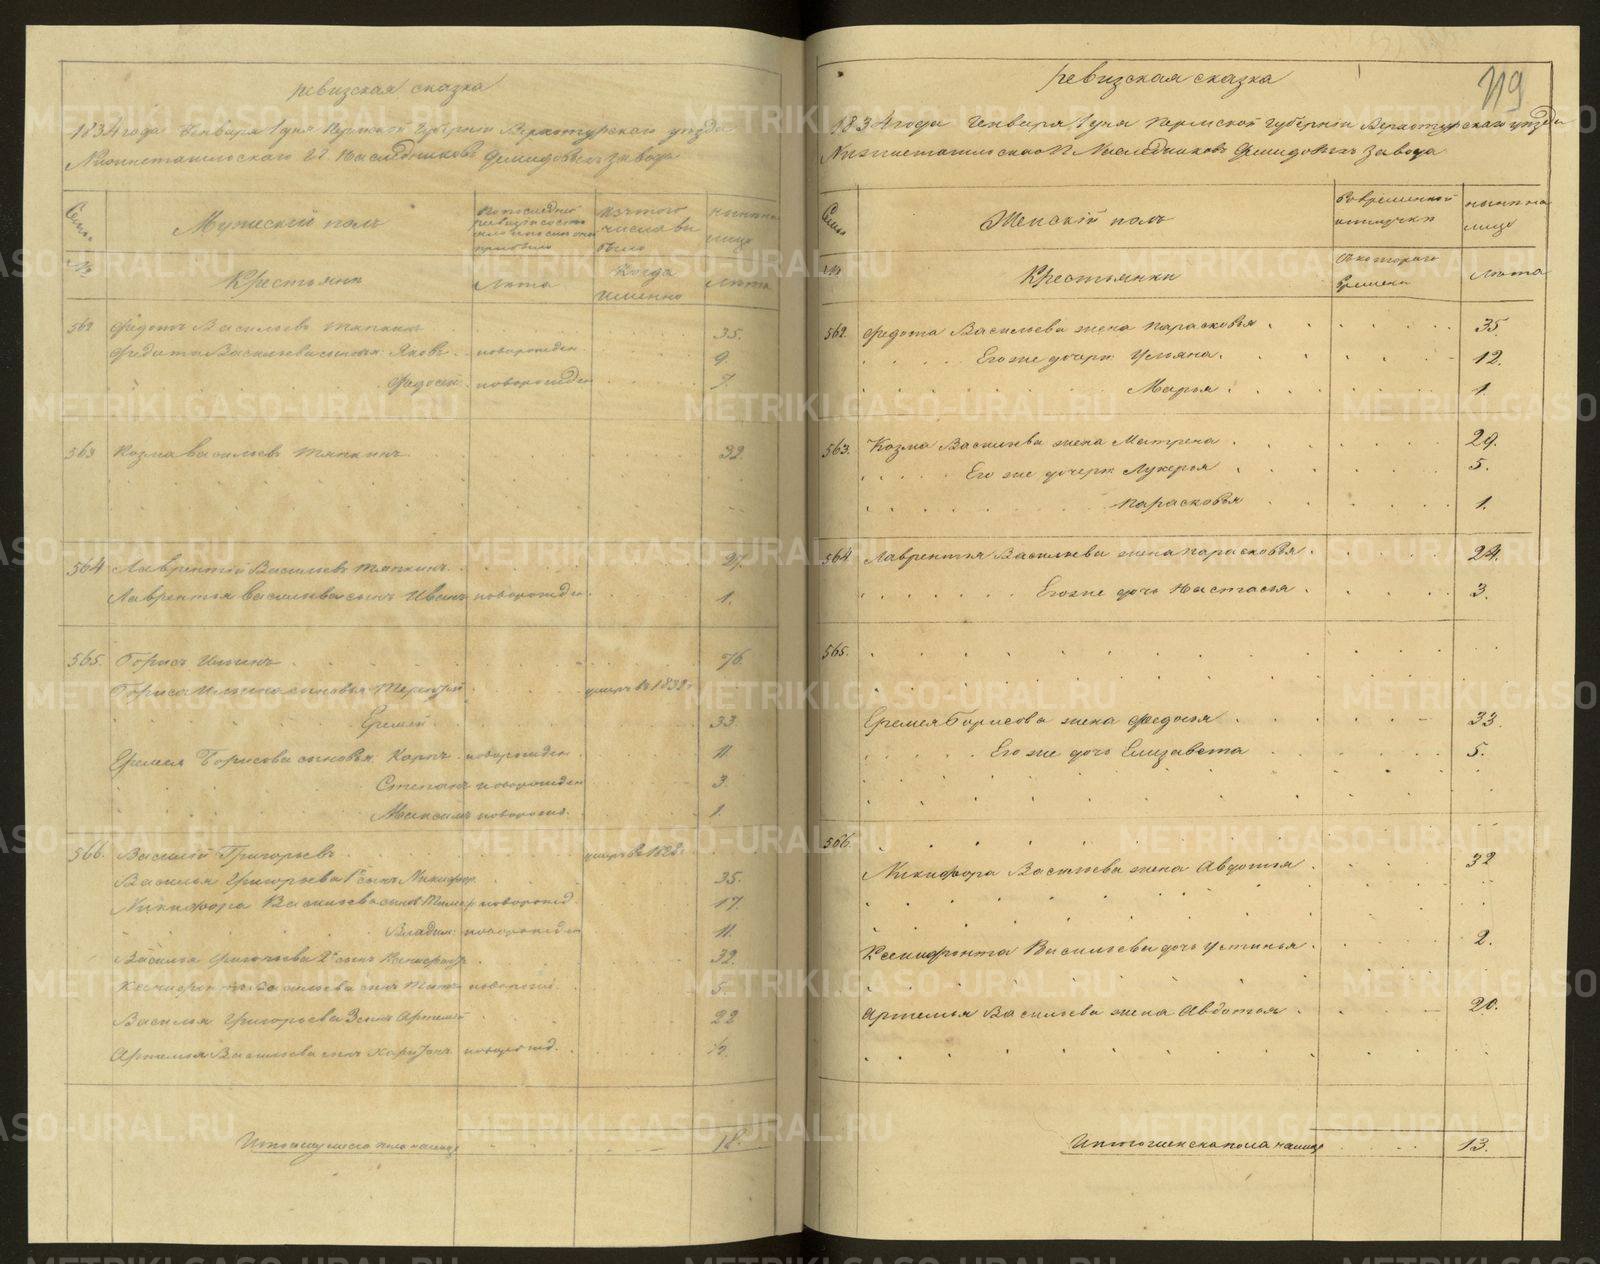 ревизская сказка
1834 года Генваря 1 дня Пермской Губернии Верхотурского уезда
Нижнетагильского Гг. Наследниковъ Демидовыхъ завода
Семьи
Мужескій полъ
По последней ревизіи состояло и после оной прибыло
Изъ того числа выбыло
ныне на лицо
№
Крестьяне
Лѣта
Когда именно
Лѣта
562 Федотъ Васильевъ Тяпкинъ 35.
Федота Васильева сыновья Яковъ новорожден 9.
Федосей новорожден 7.
563 Козма Васильевъ Тяпкинъ 32.
564 Лаврентій Васильевъ Тяпкинъ 27.
Лаврентья Васильева сынъ Иванъ новорожден 1.
565. Борисъ Ильинъ 76.
Бориса Ильина сыновья Терентій умеръ въ 1832 г
Еремей 33
Еремея Борисова сыновья Карпъ новорожден 11
Степанъ новорожден 3.
Максимъ новорожд. 1.
566. Василій Григорьевъ умеръ въ 1828 г
Василья Григорьева 1й сынъ Никифоръ 35.
Никифора Васильева сынъ новорожд. 17.
Владим: новорожден 11.
Василья Григорьева 2й сынъ Ксенофонтъ 32.
Ксенофонта Васильева сынъ Титъ новорожд. 5.
Василья Григорьева 3 сынъ Артемій 22
Артемья Васильева сынъ Харитонъ новорожд. ½.
Итого мужеска пола на лице 18.
719
ревизская сказка
1834 года Генваря 1 дня Пермской Губерніи Верхотурскаго уезда
Нижнетагильскаго Гг Наследниковъ Демидовыхъ завода
Семьи
Женскій полъ
Во временной отлучки
ныне на лицо
№
Крестьянки
Съ котораго времени
Лѣта
562. Федота Васильева жена Парасковья 35.
Его же дочери Ульяна. 12.
Марья 1.
563. Козма Васильева жена Матрена 29.
Его же дочери Лукерья 5.
Парасковья 1.
564 Лаврентья Васильева жена Парасковья 24.
Его же дочь Настасья 3.
565.
Еремея Борисова жена Федосья 33.
Его же дочь Елизавета 5.
566.
Никифора Васильева жена Авдотья 32
Ксенифонта Васильева дочь Устинья 2.
Артемья Васильева жена Авдотья 20.
Итого женска пола на лице 13.
METRIKI.GASO-URAL.RU